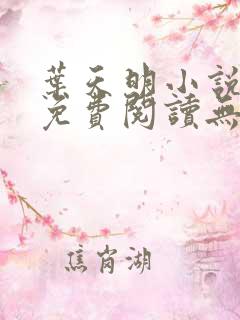 葉天明小說
免費閱讀無
焦肖湖